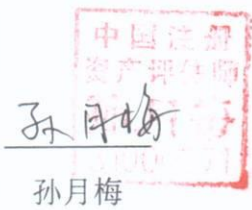 中国注册
资产评估师
孙月梅
孙月梅